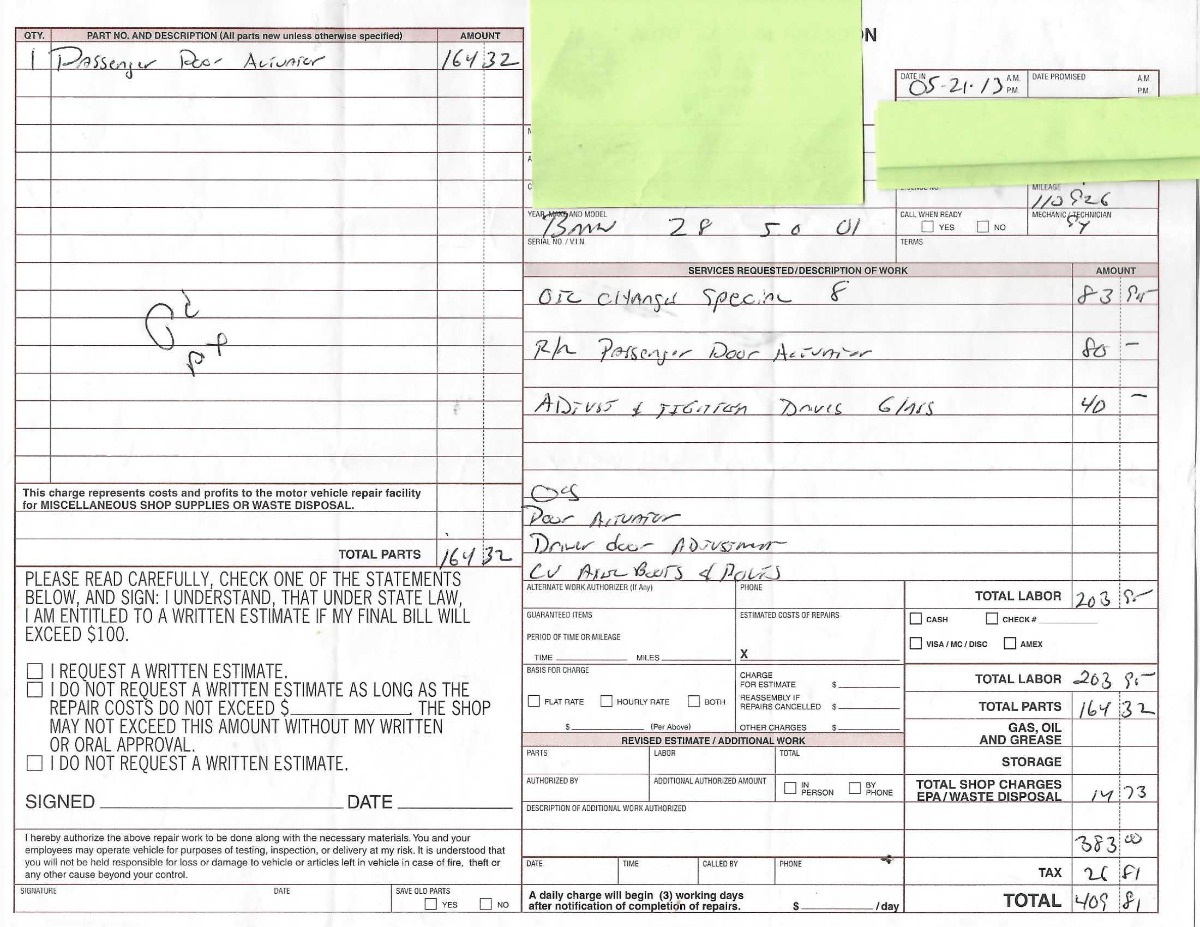 QTY. PART NO. AND DESCRIPTION (All parts new unless otherwise specified) AMOUNT
1 Passenger Door Actuator 164 32
This charge represents costs and profits to the motor vehicle repair facility
for MISCELLANEOUS SHOP SUPPLIES OR WASTE DISPOSAL.
TOTAL PARTS 164 32
PLEASE READ CAREFULLY, CHECK ONE OF THE STATEMENTS
BELOW, AND SIGN: I UNDERSTAND, THAT UNDER STATE LAW,
I AM ENTITLED TO A WRITTEN ESTIMATE IF MY FINAL BILL WILL
EXCEED $100.
I REQUEST A WRITTEN ESTIMATE.
I DO NOT REQUEST A WRITTEN ESTIMATE AS LONG AS THE
REPAIR COSTS DO NOT EXCEED $ THE SHOP
MAY NOT EXCEED THIS AMOUNT WITHOUT MY WRITTEN
OR ORAL APPROVAL.
I DO NOT REQUEST A WRITTEN ESTIMATE.
SIGNED DATE
I hereby authorize the above repair work to be done along with the necessary materials. You and your
employees may operate vehicle for purposes of testing, inspection, or delivery at my risk. It is understood that
you will not be held responsible for loss or damage to vehicle or articles left in vehicle in case of fire, theft or
any other cause beyond your control.
SIGNATURE DATE SAVE OLD PARTS
YES NO
N
DATE IN 05-21-13 A.M. P.M. DATE PROMISED A.M. P.M.
MILEAGE
YEAR, MAKE AND MODEL
BMW 28 50 01
CALL WHEN READY
YES NO
MECHANIC / TECHNICIAN
SERIAL NO. / V.I.N.
TERMS
SERVICES REQUESTED/DESCRIPTION OF WORK AMOUNT
OIL Change Special 8 83 95
R/R Passenger Door Actuator 80 -
Adjust & Tighten Glass 40 -
Door Actuator
Driver door Adjustment
CV Axle Boots &
ALTERNATE WORK AUTHORIZER (If Any) PHONE
GUARANTEED ITEMS ESTIMATED COSTS OF REPAIRS
PERIOD OF TIME OR MILEAGE
TIME MILES X
BASIS FOR CHARGE
FLAT RATE HOURLY RATE BOTH
$ (Per Above)
CHARGE
FOR ESTIMATE $
REASSEMBLY IF
REPAIRS CANCELLED $
OTHER CHARGES $
REVISED ESTIMATE / ADDITIONAL WORK
PARTS LABOR TOTAL
AUTHORIZED BY ADDITIONAL AUTHORIZED AMOUNT IN PERSON BY PHONE
DESCRIPTION OF ADDITIONAL WORK AUTHORIZED
DATE TIME CALLED BY PHONE
A daily charge will begin (3) working days
after notification of completion of repairs. $ /day
TOTAL LABOR 203 95
CASH CHECK #
VISA / MC / DISC AMEX
TOTAL LABOR 203 95
TOTAL PARTS 164 32
GAS, OIL
AND GREASE
STORAGE
TOTAL SHOP CHARGES
EPA/WASTE DISPOSAL 14 73
383 00
TAX 26 81
TOTAL 409 81